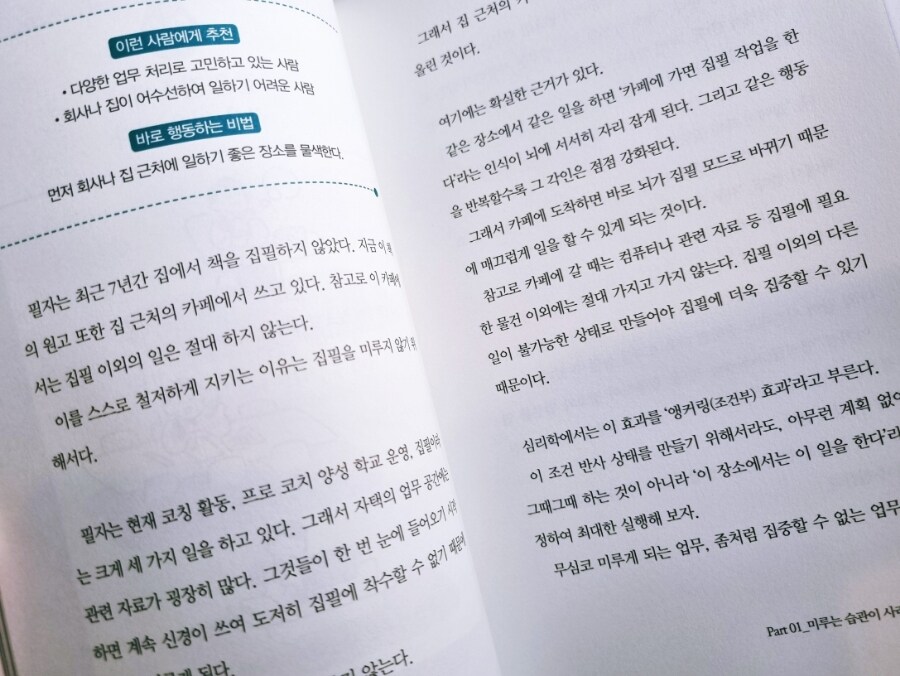 이런 사람에게 추천
• 다양한 업무 처리로 고민하고 있는 사람
• 회사나 집이 어수선하여 일하기 어려운 사람
바로 행동하는 비법
먼저 회사나 집 근처에 일하기 좋은 장소를 물색한다.
필자는 최근 7년간 집에서 책을 집필하지 않았다. 지금 이 책
의 원고 또한 집 근처의 카페에서 쓰고 있다. 참고로 이 카페에
서는 집필 이외의 일은 절대 하지 않는다.
이를 스스로 철저하게 지키는 이유는 집필을 미루지 않기 위
해서다.
필자는 현재 코칭 활동, 프로 코치 양성 학교 운영, 집필이라
는 크게 세 가지 일을 하고 있다. 그래서 자택의 업무 공간에는
관련 자료가 굉장히 많다. 그것들이 한 번 눈에 들어오기 시작
하면 계속 신경이 쓰여 도저히 집필에 착수할 수 없기 때문에
된다.
않는다.
그래서 집 근처의
올린 것이다.
여기에는 확실한 근거가 있다.
같은 장소에서 같은 일을 하면 ‘카페에 가면 집필 작업을 한
다’라는 인식이 뇌에 서서히 자리 잡게 된다. 그리고 같은 행동
을 반복할수록 그 각인은 점점 강화된다.
그래서 카페에 도착하면 바로 뇌가 집필 모드로 바뀌기 때문
에 매끄럽게 일을 할 수 있게 되는 것이다.
참고로 카페에 갈 때는 컴퓨터나 관련 자료 등 집필에 필요
한 물건 이외에는 절대 가지고 가지 않는다. 집필 이외의 다른
일이 불가능한 상태로 만들어야 집필에 더욱 집중할 수 있기
때문이다.
심리학에서는 이 효과를 ‘앵커링(조건부) 효과’라고 부른다.
이 조건 반사 상태를 만들기 위해서라도, 아무런 계획 없이
그때그때 하는 것이 아니라 ‘이 장소에서는 이 일을 한다’라
정하여 최대한 실행해 보자.
무심코 미루게 되는 업무, 좀처럼 집중할 수 없는 업무
Part 01_미루는 습관이